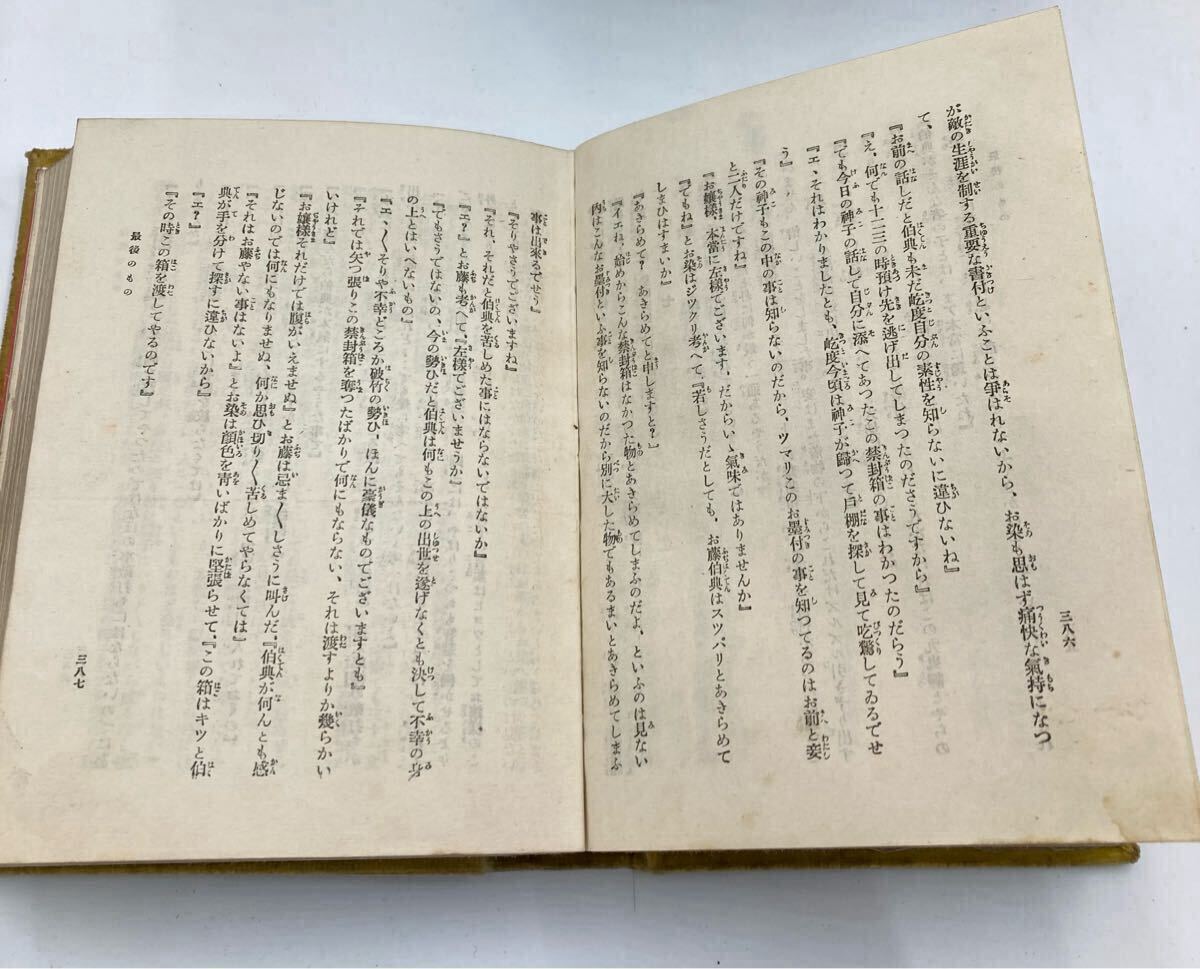 三八六
が敵の生涯を制する重要な書付といふことは爭はれないから、お染も思はず痛快な氣持になつ
て、
『お前の話しだと伯典も未だ屹度自分の素性を知らないに違ひないね』
『え、何でも十二三の時預け先を逃げ出してしまつたのださうですから』
『でも今日の神子の話しで自分に添へてあつたこの禁封箱の事はわかつたのだらう』
『エ、それはわかりましたとも、屹度今頃は神子が歸つて戸棚を探して見て吃驚してゐるでせ
う』
『その神子もこの中の事は知らないのだから、ツマリこのお墨付の事を知つてるのはお前と妾
と二人だけですね』
『お孃樣、本當に左樣でございます、だからいゝ氣味ではありませんか』
『でもね』とお染はジックリ考へて、『若しさうだとしても、お藤伯典はスツパリとあきらめて
しまひはすまいか』
『あきらめて？ あきらめてと申しますと？』
『イエね、始めからこんな禁封箱はなかつた物とあきらめてしまふのだよ、といふのは見ない
内はこんなお墨付といふ事を知らないのだから別に大した物でもあるまいとあきらめてしまふ
事は出來るでせう』
『そりやさうでございますね』
『それ、それだと伯典を苦しめた事にはならないではないか』
『エ？』とお藤も考へて、『左樣でございませうか』
『でもさうではないの、今の勢ひだと伯典は何もこの上の出世を遂げなくとも決して不幸の身
の上とはいへないもの』
『エ、〱そりや不幸どころか破竹の勢ひ、ほんに豪儀なものでございますとも』
『それでは矢つ張りこの禁封箱を奪つたばかりで何にもならない、それは渡すよりか幾らかい
いけれど』
『お孃樣それだけでは腹がいえませぬ』とお藤は忌ま〱しさうに叫んだ『伯典が何んとも感
じないのでは何にもなりませぬ、何か思ひ切り〱苦しめてやらなくては』
『それはお藤やない事はないよ』とお染は顏色を靑いばかりに堅張らせて、『この箱はキツと伯
典が手を分けて探すに違ひないから』
『エ？』
『その時この箱を渡してやるのです』
最後のもの
三八七